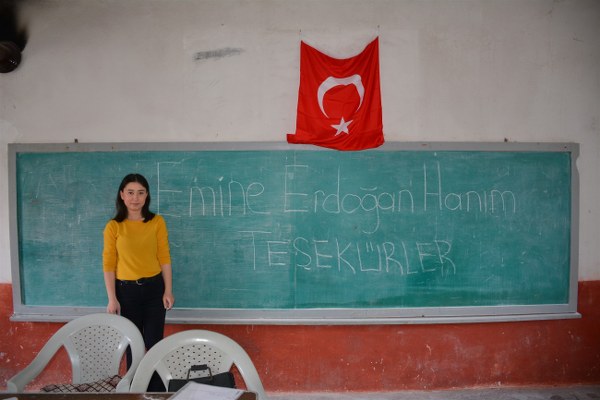 Emine Erdoğan Hanım
TEŞEKÜRLER